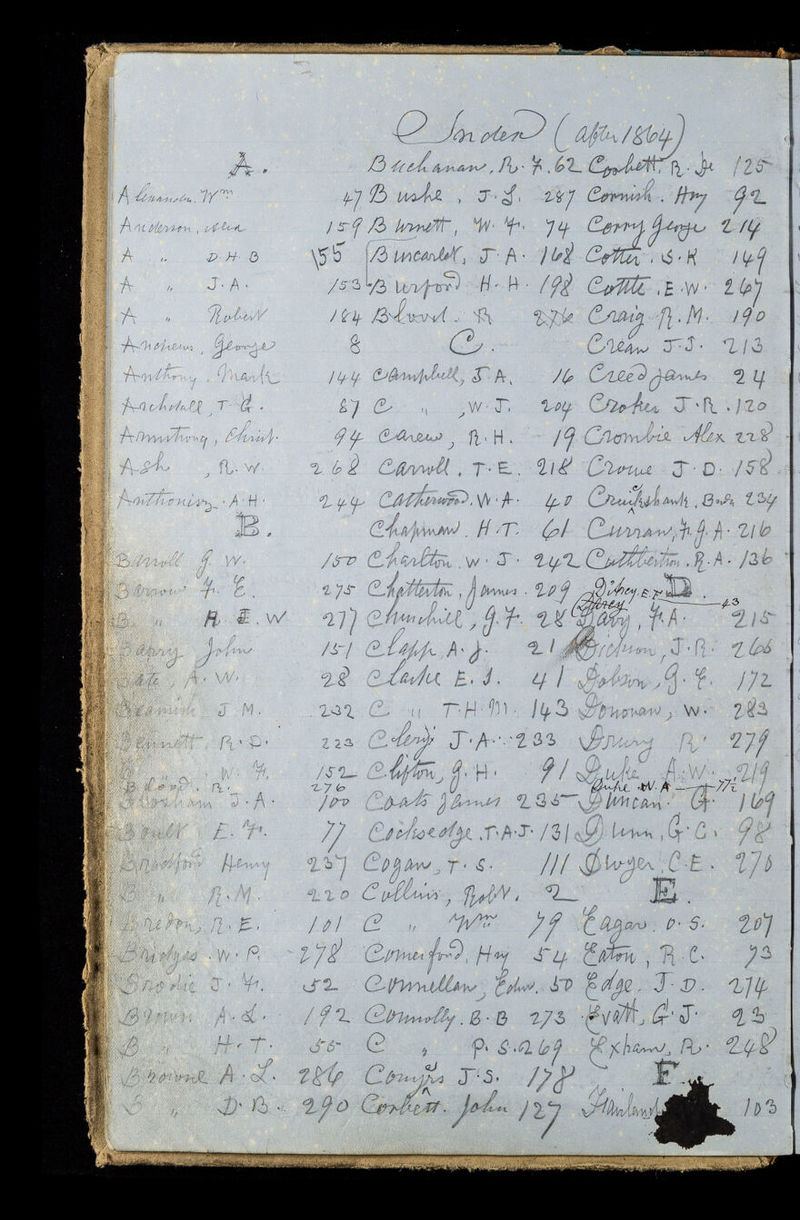 Index (after 1864)
A.
Alexander. Wm 47
Anderson, 159
A " D. H. B 155
A " J. A. 153
A " Robert 184
Andrews, George 8
Anthony. Mark 144
Archdall, T. G. 87
Armstrong, Christ. 94
Ash, R. W. 268
Anthonisz. A. H. 244
B.
Barroll G. W. 150
Barrow F. E. 275
B " H. E. W 277
Barry John 151
Bate, A. W. 28
Beamish J. M. 232
Bennett, R. D. 223
B " W. F. 152
Blood. R. 276
Bloxham J. A. 100
Boult E. F. 77
Bradford Henry 237
B " R. M. 220
Bredon, R. E. 101
Bridges. W. P. 278
Brodie J. F. 52
Brown A. L. 192
B " H. T. 55
Browne A. L. 286
B " D. B. 290
Buchanan, R. F. 62
Bushe, J. S. 287
Burnett, W. F. 74
J. A. 168
Burford H. H. 198
Blood. R 276
C.
Campbell, J. A. 16
C " , W. J. 204
Carew, R. H. 19
Carroll. T. E. 218
Catherwood. W. A. 40
Chapman. H. T. 61
Charlton. W. J. 242
Chatterton, James. 209
Churchill, G. F. 28
Clapp, A. J. 21
Clarke E. S. 41
C " T. H. M. 143
Clery J. A. 233
Clifton, G. H. 91
Coats James 235
Cocksedge. T. A. J. 131
Cogan, T. S. 111
Collins, Robt. 2
C " Wm 79
Comerford, Hny 54
Connellan, Edw. 50
Connolly. B. B 273
C " P. S. 269
Conyers J. S. 178
Corbett. John 127
Corbett. R. De 125
Cornish. Hny 92
Corry George 214
Cotter. S. K 149
Cottle. E. W. 267
Craig R. M. 190
Crean J. J. 213
Creed James 24
Croker J. R. 120
Crombie Alex 228
Crowe J. D. 158
Cruickshank, 234
Curran, F. G. A. 216
Cuthbertson. R. A. 136
D.
E F 43
Davy, F. A. 215
Dickson, J. R. 266
Dobson, G. E. 172
Donovan, W. 283
Drury R. 279
Duke A. W. 219
Duke W. A 77½
Duncan G. 169
Dunn, G. C. 98
Dwyer C. E. 270
E.
Eagar. O. S. 207
Eaton, R. C. 73
Edge. J. D. 274
Evatt, G. J. 23
Exham, R. 248
F.
103